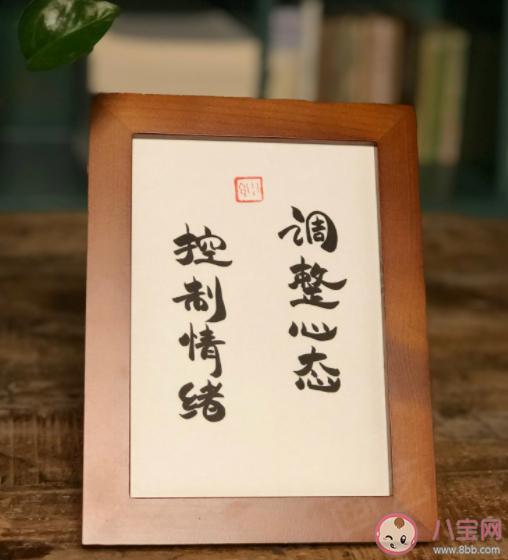 调整心态
控制情绪
八宝网
www.8bb.com